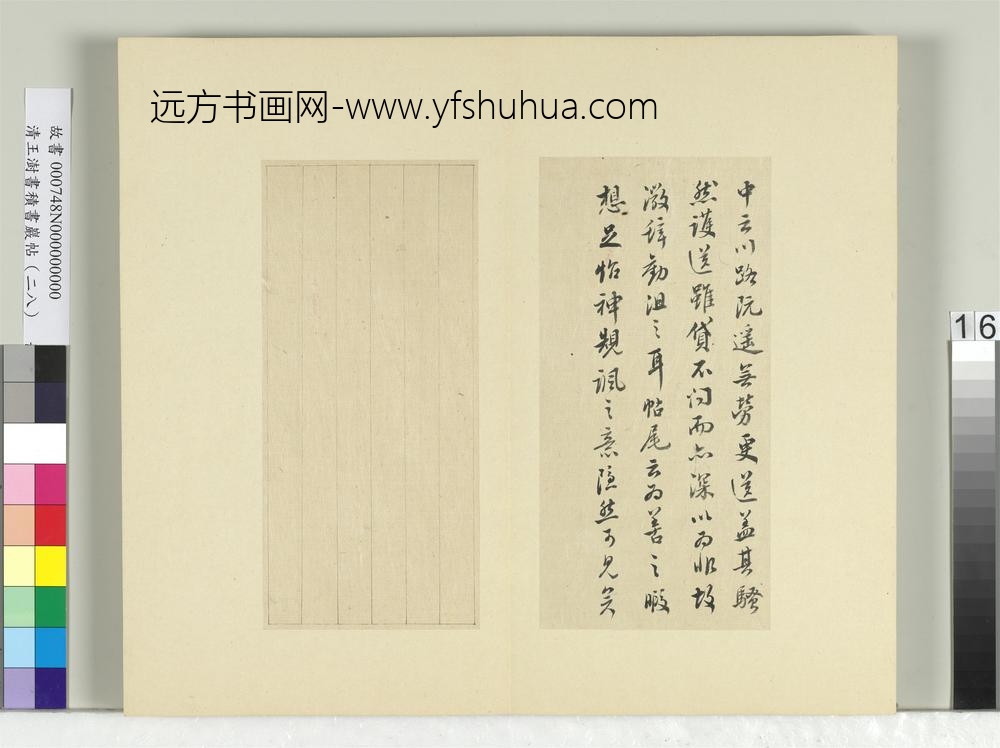 远方书画网-www.yfshuhua.com
故書 000748N000000000
清王澍書積書巖帖（二八）
中云川路阮遥無勞更送蓋其騷
然護送雖貸不问而亦深以为非故
激辞勸沮之耳帖尾云为善之暇
想足怡神規諷之意隱然可見矣
16